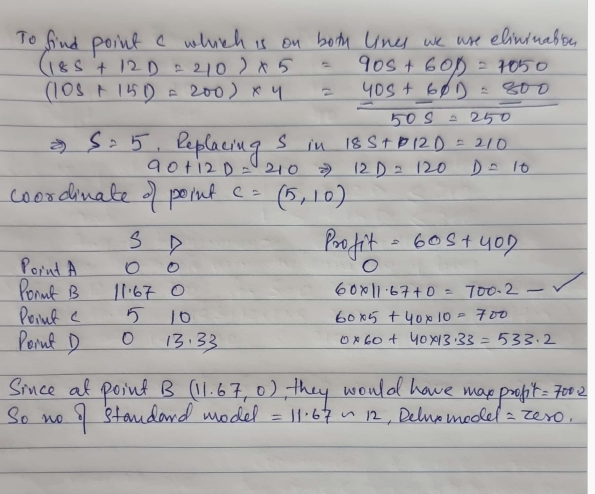 To find point C which is on both lines we use elimination
(18S + 12D = 210) × 5 = 90S + 60D = 1050
(10S + 15D = 200) × 4 = 40S + 60D = 800
50S = 250
⇒ S = 5. Replacing S in 18S + 12D = 210
90 + 12D = 210 ⇒ 12D = 120 D = 10
coordinate of point C = (5,10)
S D Profit = 60S + 40D
Point A 0 0 0
Point B 11.67 0 60×11.67+0 = 700.2 – ✓
Point C 5 10 60×5 + 40×10 = 700
Point D 0 13.33 0×60 + 40×13.33 = 533.2
Since at point B (11.67, 0), they would have max profit = 700.2
So no of standard model = 11.67 ~ 12, Delux model = zero.